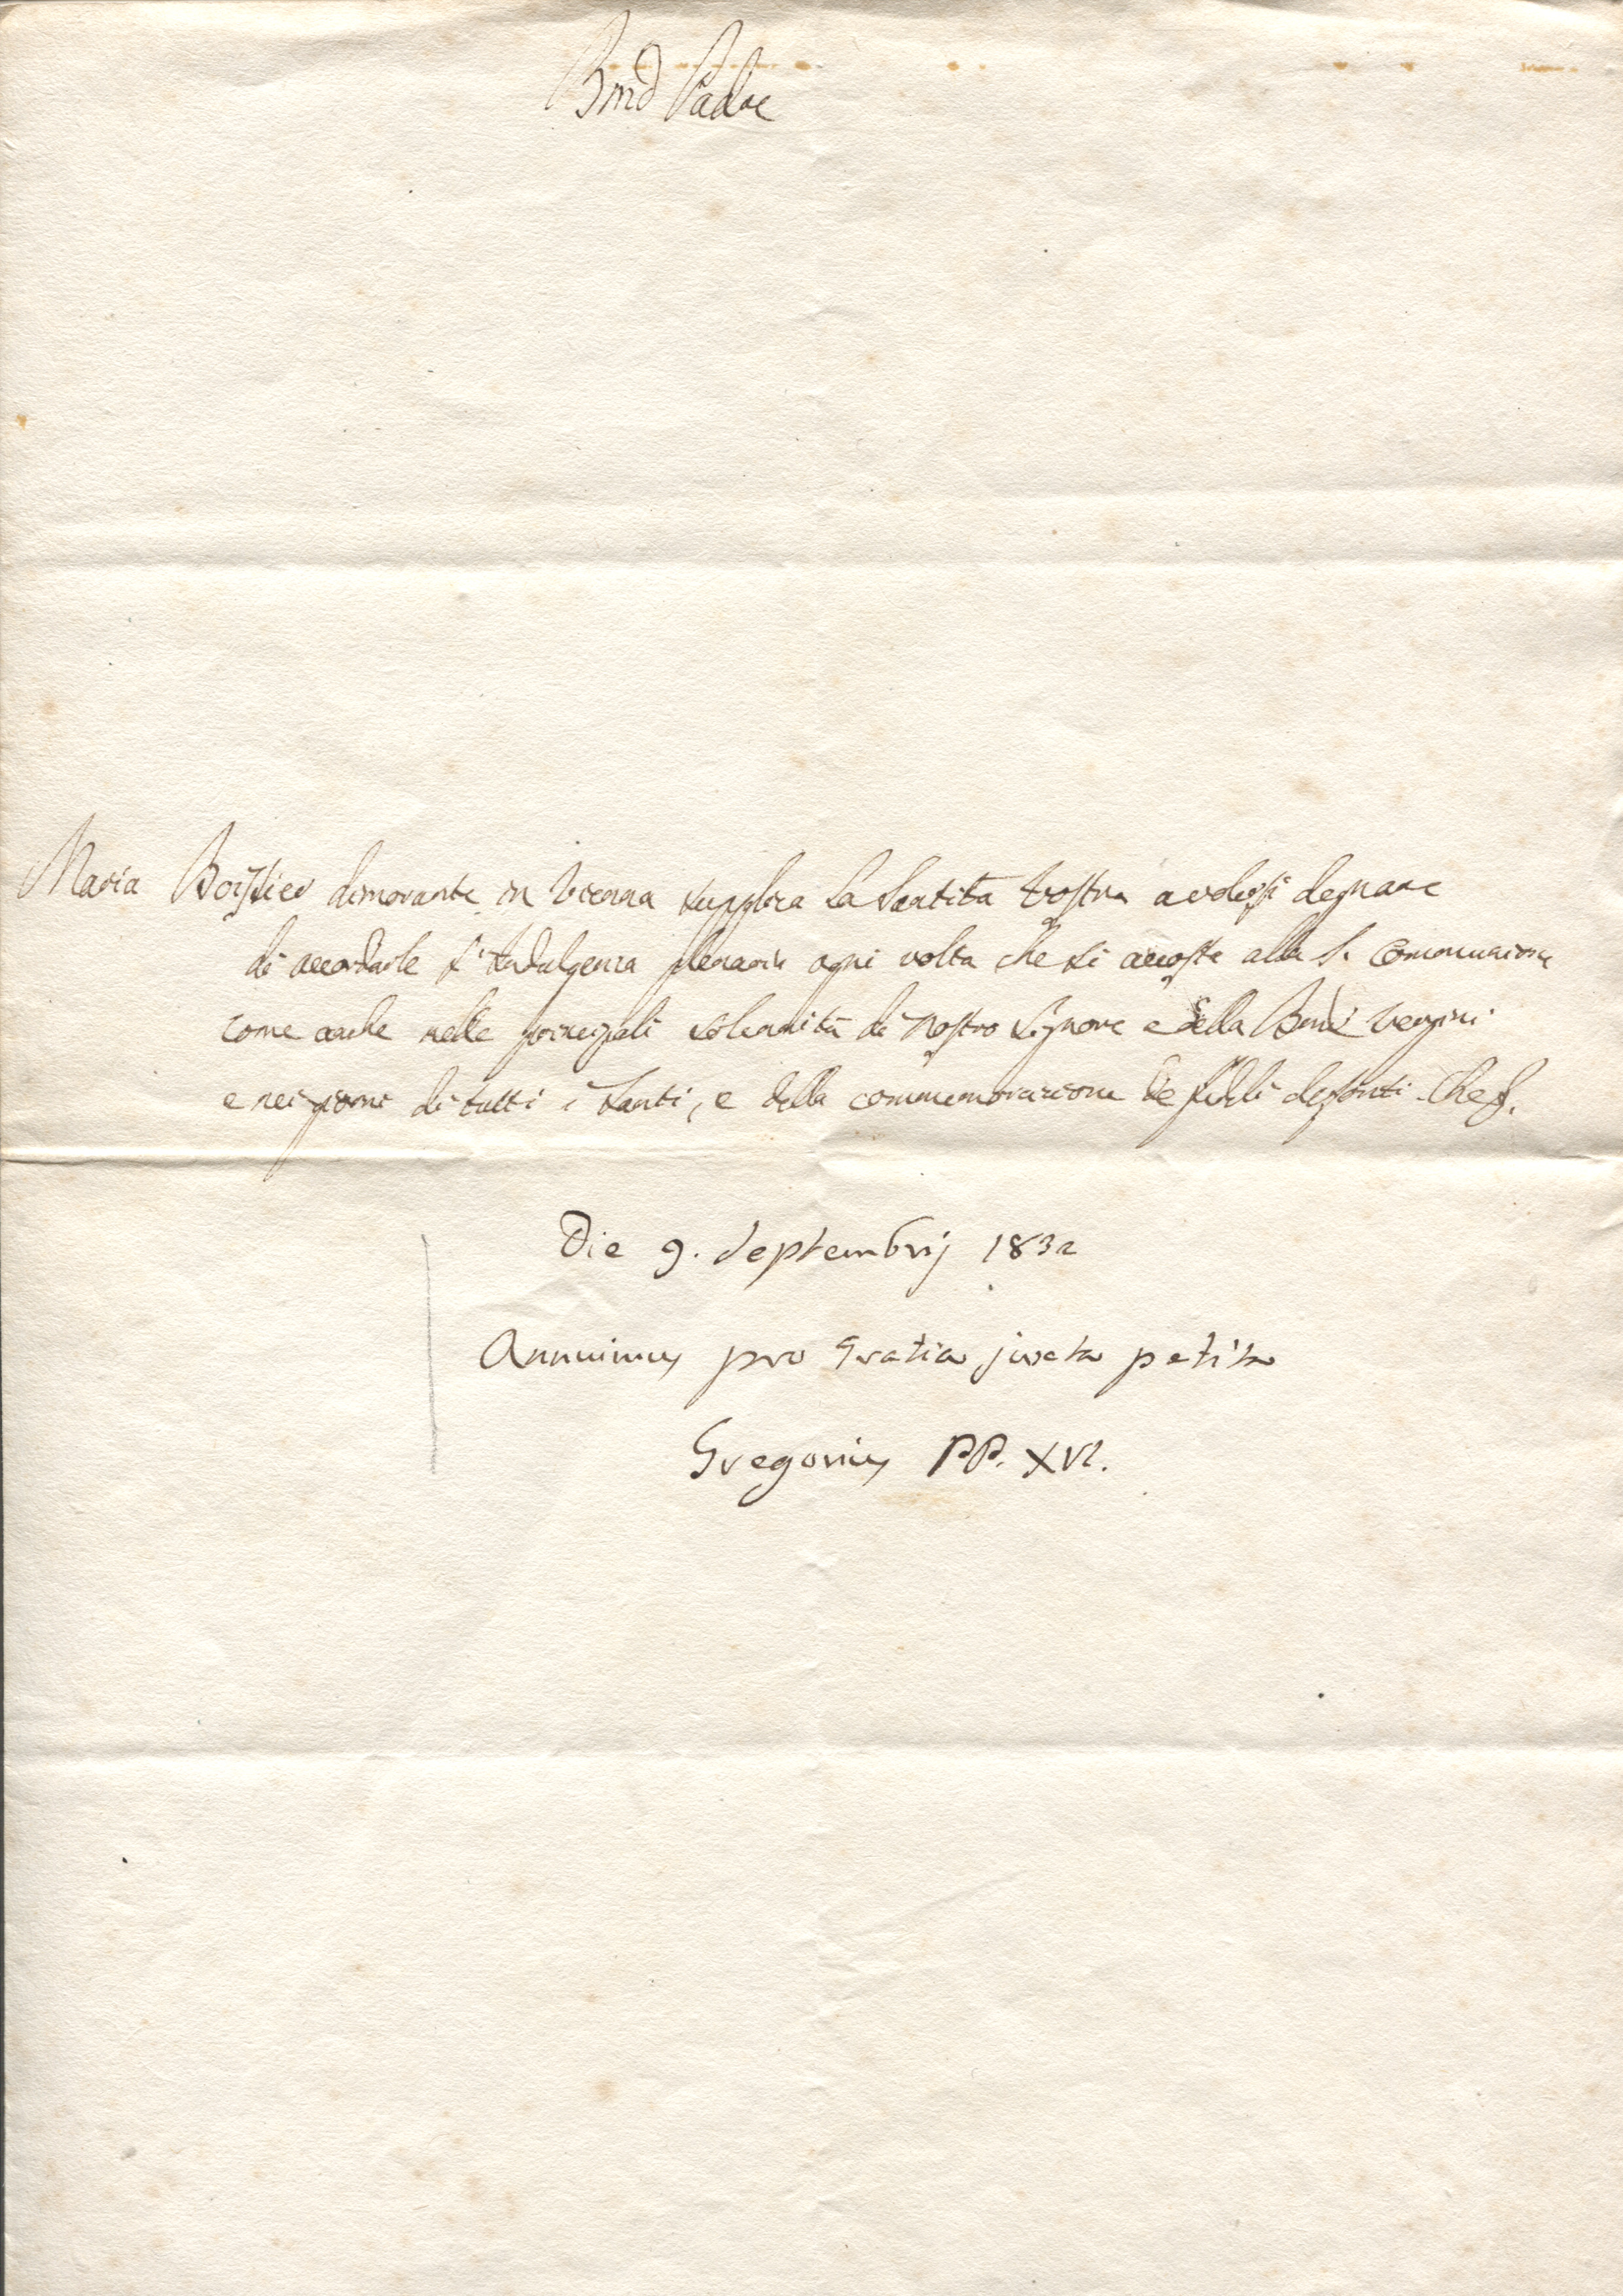 Bmō Padre
Maria dimorante in Vienna supplica La Santità Vostra a volersi degnare
di accordarle l'Indulgenza plenaria ogni volta che si accosta alla S. Communione
come anche nelle principali solennità di Nostro Signore e della Vergine
e nei giorni di tutti i Santi, e della commemorazione de fedeli defonti. Che
Die 9. Septembris 1832
Annuimus pro Gratia juxta petita
Gregorius PP. XVI.